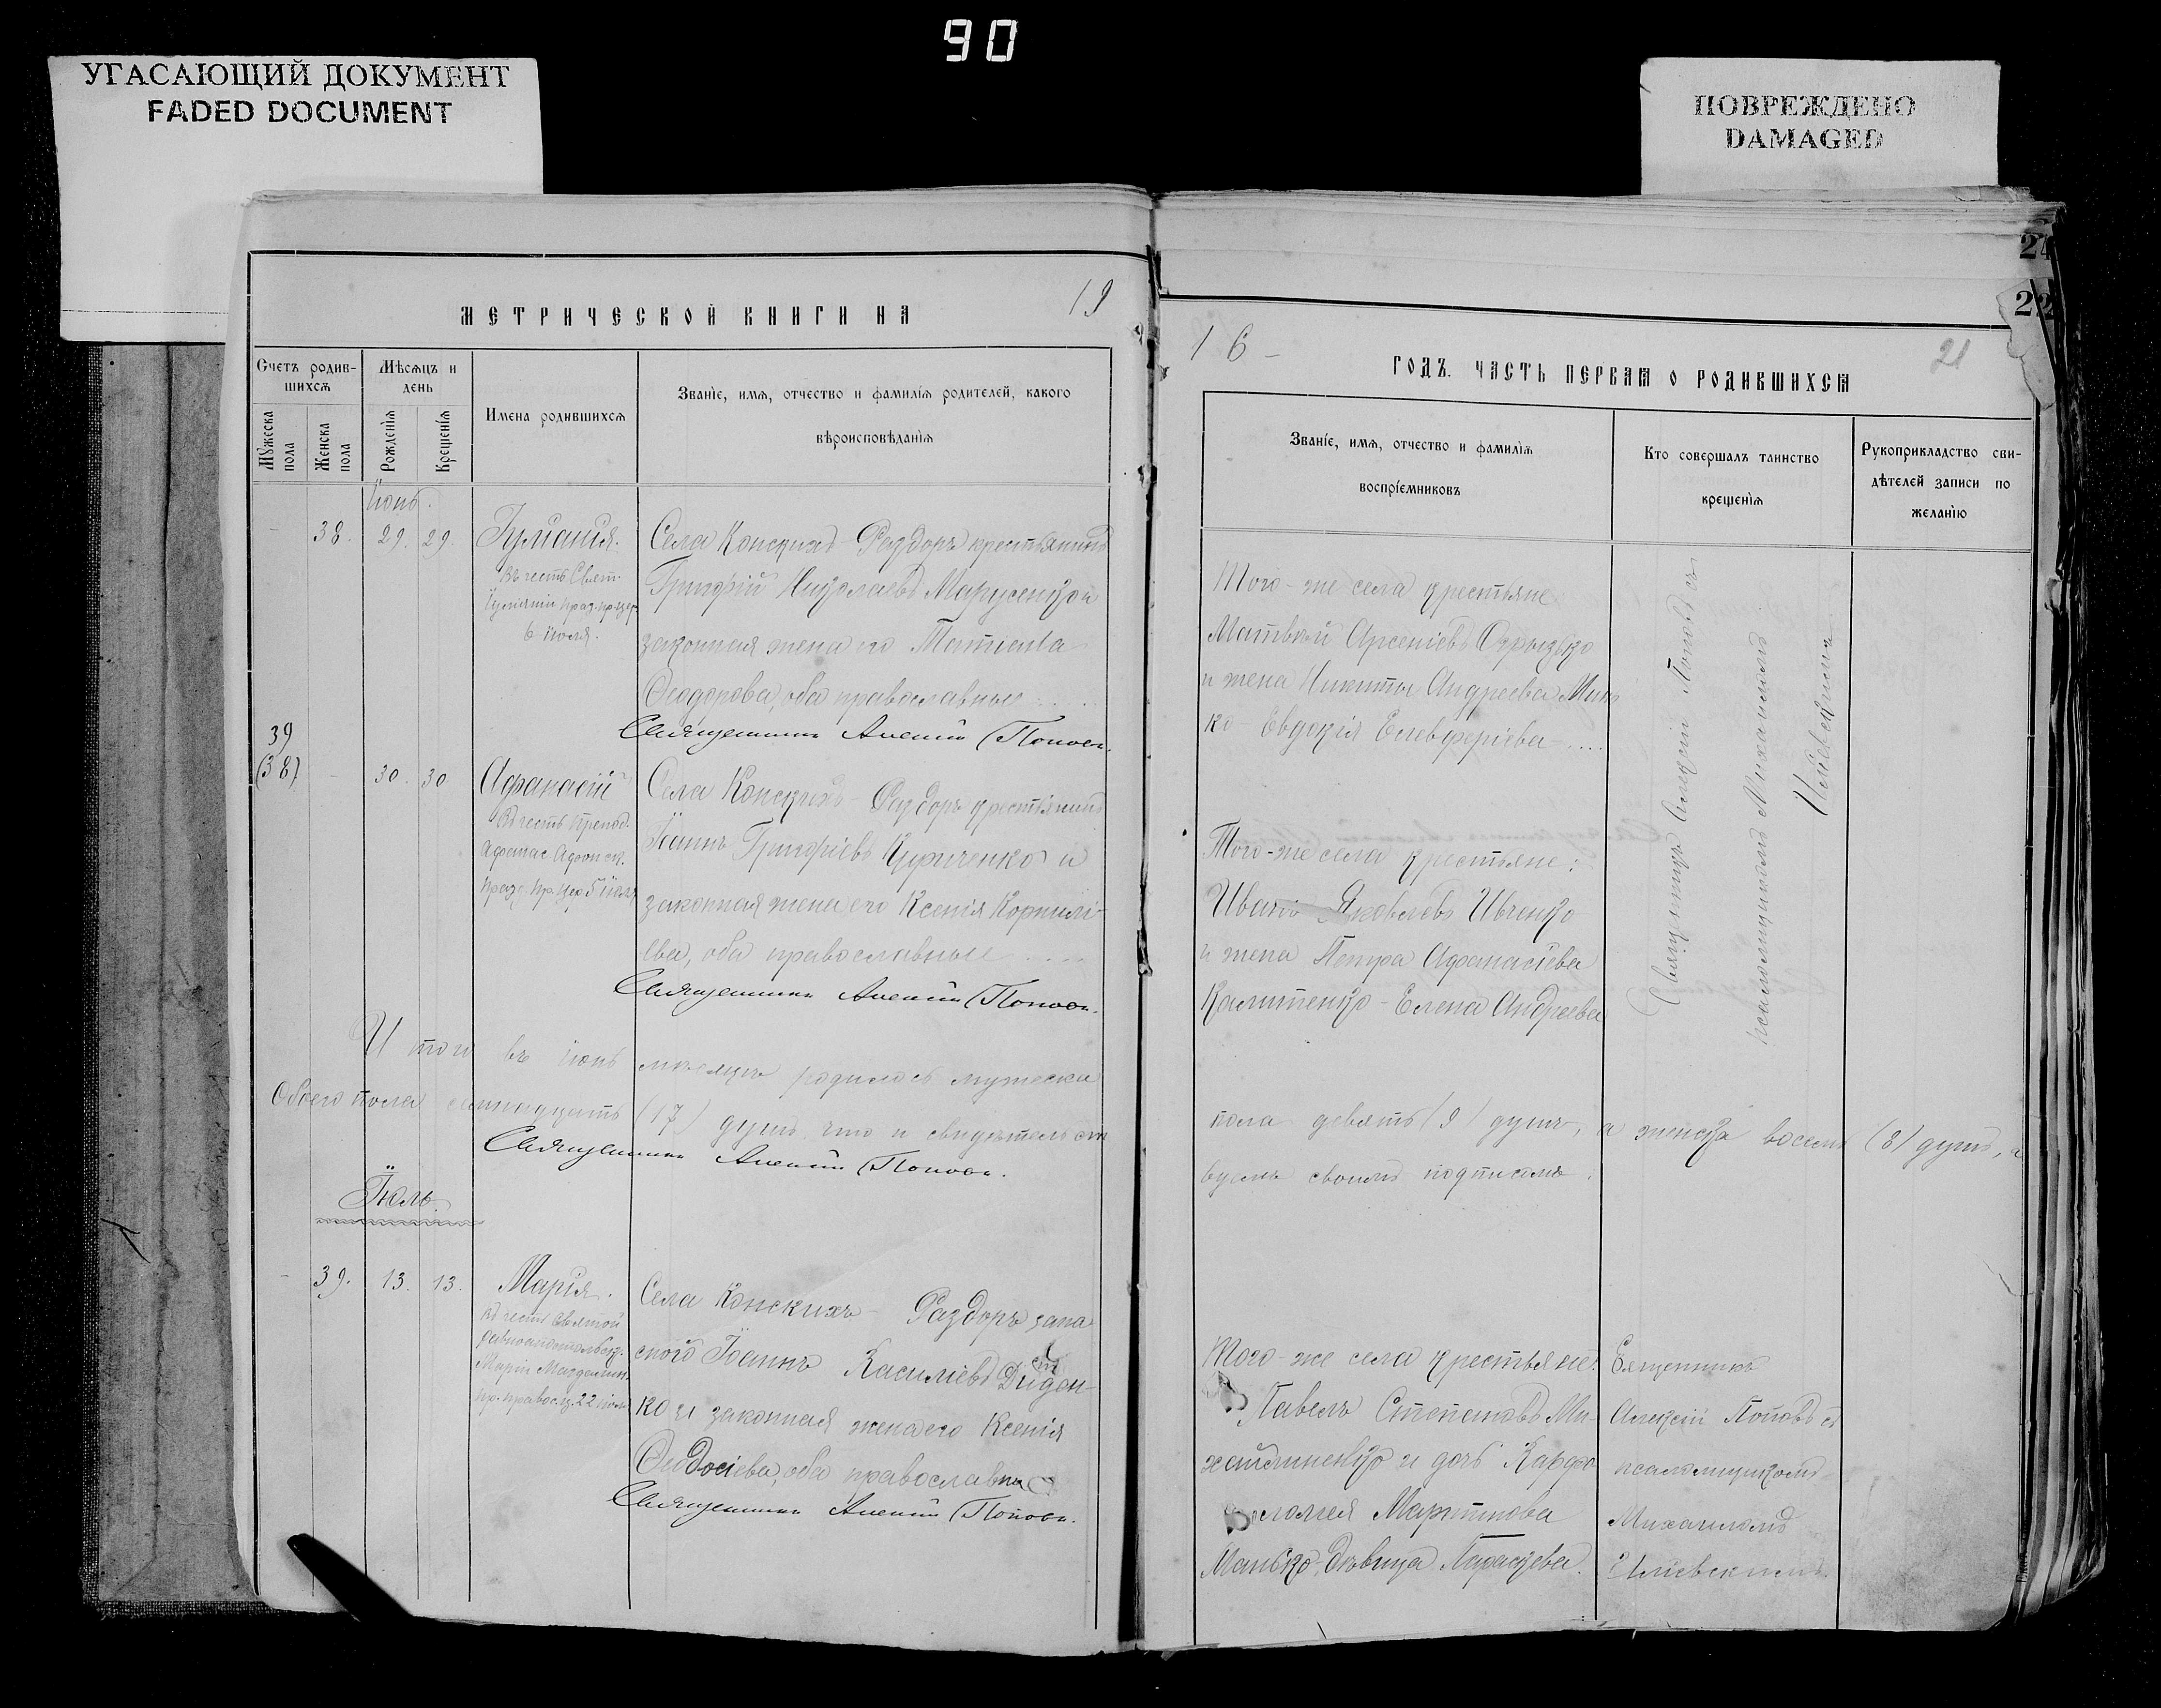 90
УГАСАЮЩИЙ ДОКУМЕНТ
FADED DOCUMENT
ПОВРЕЖДЕНО
DAMAGED
24
22
МЕТРИЧЕСКОЙ КНИГИ НА
19
Счетъ родив-
шихся
Мѣсяцъ и
день
Имена родившихся
Званіе, имя, отчество и фамилія родителей, какого
вѣроисповѣданія
Мужеска
пола
Женска
пола
Рожденія
Крещенія
Іюнь.
38. 29. 29.
Іуліанія.
Въ честь Свят.
6 іюля.
Села Конскихъ-Раздоръ крестьянинъ
Григорій Николаевъ Марусенко и
законная жена его Татіана
Ѳеодорова, оба православные
Священникъ Алексій Поповъ.
39
(38)
- 30. 30
Афанасій
Въ честь препод.
Афанас. Афонск.
праз. пр. цер. 5 іюля
Села Конскихъ-Раздоръ крестьянинъ
Іоаннъ Григоріевъ и
законная жена его Ксенія Корнилі-
ева, оба православные
Священникъ Алексій Поповъ.
Итого въ іюнѣ мѣсяцѣ родилось мужеска
Обоего пола семнадцать (17) душъ что и свидѣтельст
Священникъ Алексій Поповъ.
Іюль.
- 39. 13. 13.
Марія.
Въ честь святой
равноапостольск.
Маріи Магдалин.
пр. правос. ц. 22 іюля
Села Конскихъ-Раздоръ запа
сной Іоаннъ Васильевъ Дiден-
ко и законная жена его Ксенія
Ѳеодосіева, оба православн
Священникъ Алексій Поповъ.
16 -
ГОДЪ. ЧАСТЬ ПЕРВАЯ О РОДИВШИХСЯ
21
Званіе, имя, отчество и фамилія
воспріемниковъ
Кто совершалъ таинство
крещенія
Рукоприкладство сви-
дѣтелей записи по
желанію
Того-же села крестьяне
Матвѣй Арсеніевъ Огрызко
и жена Никиты Андреева Мить
ко - Евдокія Елевферіева
Того-же села крестьяне:
Иванъ Яковлевъ Ивченко
и жена Петра Афанасіева
Калитенко - Елена Андреева
Священникъ Алексій Поповъ съ
псаломщикомъ Михаиломъ
пола девять (9) душъ, а женска восемь (8) душъ, а
вуемъ своимъ подписомъ.
Того-же села крестьяне:
Павелъ Степановъ Ми-
и дочь
Мартинова
дѣвица
Священникъ
Алексій Поповъ съ
псаломщикомъ
Михаиломъ